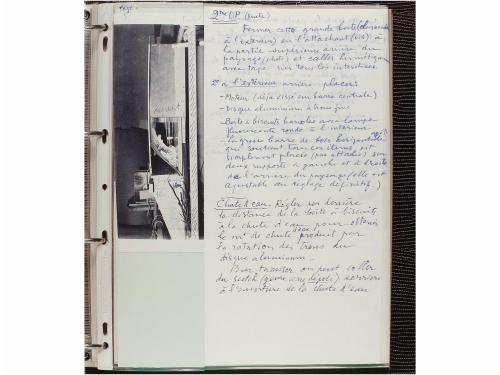 2me OP (suite)
Fermer cette grande boite
à l'extérieur) en l'attachant (vis) à
la partie supérieure arrière du
paysage (photo) et coller hermétiquement
avec tape noir tous les interstices.
à l'extérieur arrière placer:
- Moteur (déja vissé sur barre centrale)
- Disque aluminium à trous fins
- Boite à biscuits bariolée avec lampe
fluorescente ronde à l'intérieur
- la grosse barre de bois horizontale
qui soutient tous ces items est
simplement placée (pas attachée) sur
deux supports à gauche et à droite
de l'arrière du paysage (elle est
ajustable au réglage definitif)
Chute d'eau Régler par derrière
la distance de la boite à biscuits
à la chute d'eau pour obtenir
le mt de chute produit par
la rotation des trous du
disque aluminium -
Pour tamiser on peut coller
du scotch (genre verre dépoli) derrière
à l'ouverture de la chute d'eau